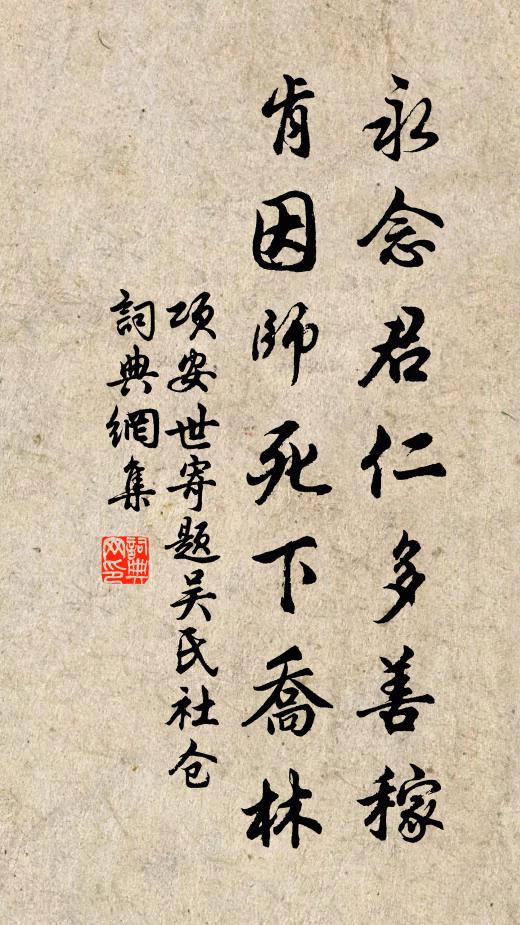 永念君仁多善稼
肯因師死下喬林
项安世寄题吴氏社仓
詞典網集
詞典
网印